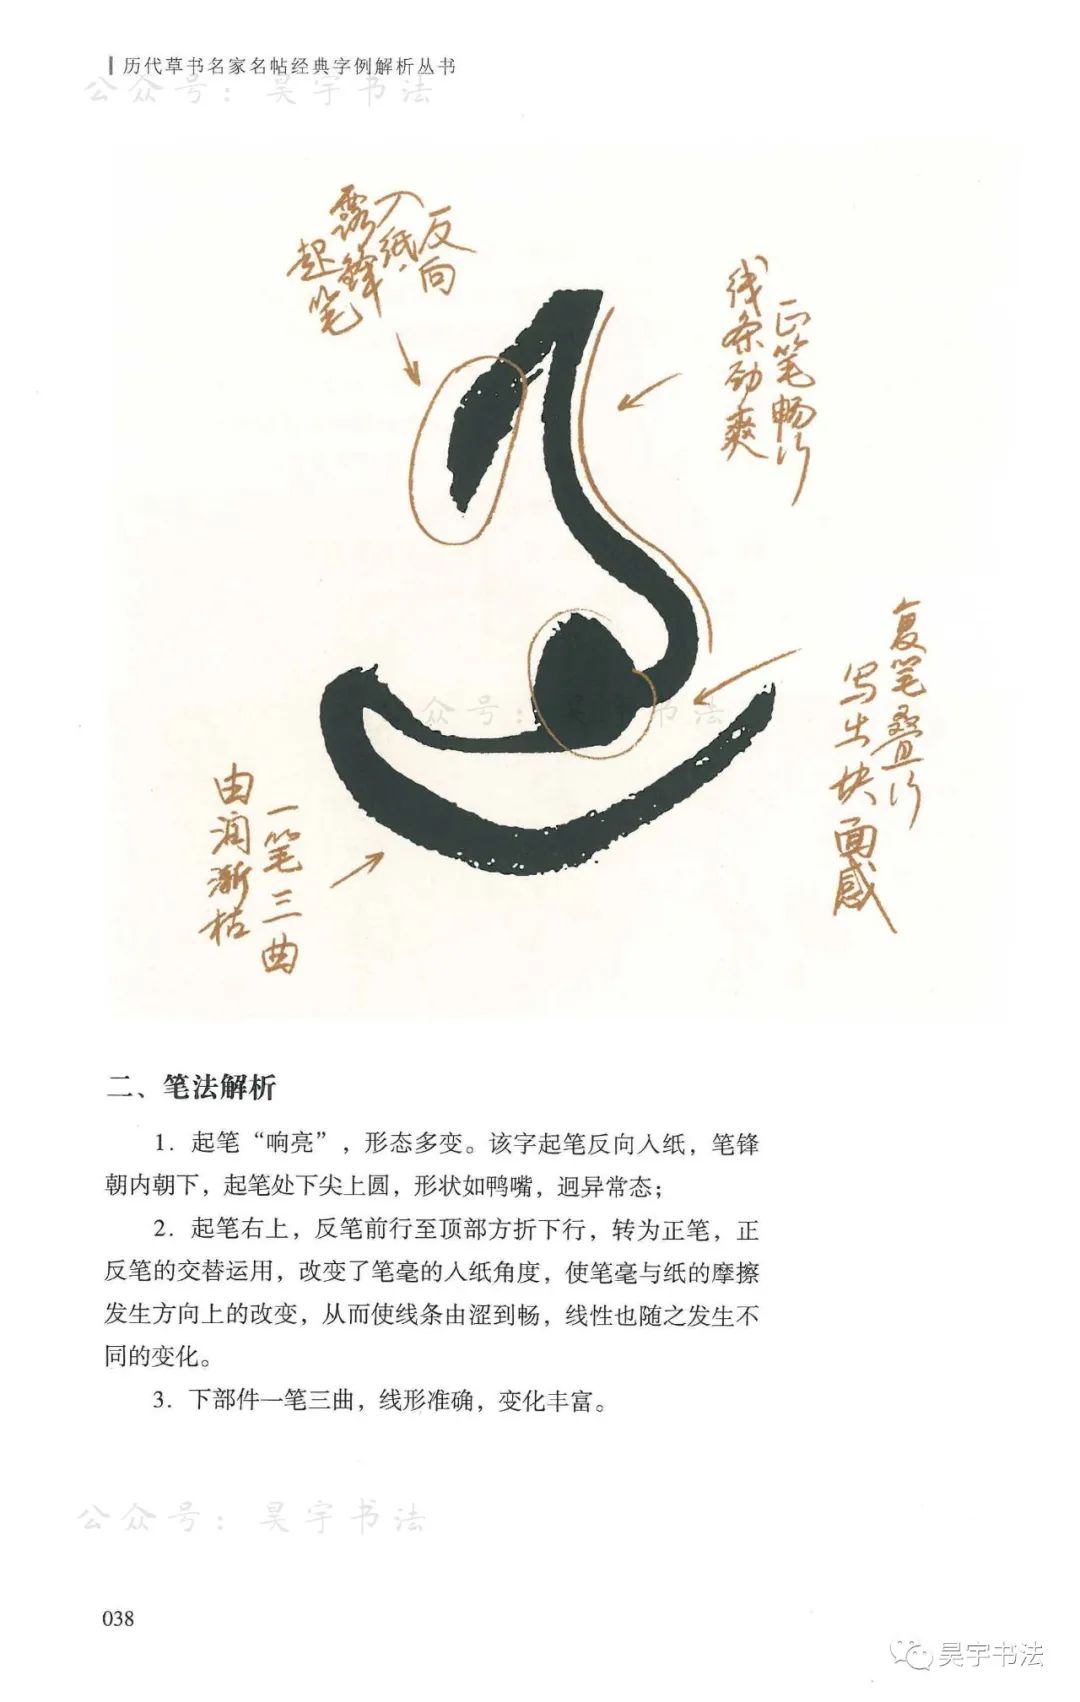 历代草书名家名帖经典字例解析丛书
公众号：昊宇书法
反向
入纸、
露锋
起笔
正笔畅行
线条劲爽
复笔叠行
写出块面感
公众号：昊宇书法
一笔三曲
由润渐枯
二、笔法解析
1. 起笔“响亮”，形态多变。该字起笔反向入纸，笔锋
朝内朝下，起笔处下尖上圆，形状如鸭嘴，迥异常态；
2. 起笔右上，反笔前行至顶部方折下行，转为正笔，正
反笔的交替运用，改变了笔毫的入纸角度，使笔毫与纸的摩擦
发生方向上的改变，从而使线条由涩到畅，线性也随之发生不
同的变化。
3. 下部件一笔三曲，线形准确，变化丰富。
公众号：昊宇书法
038
昊宇书法